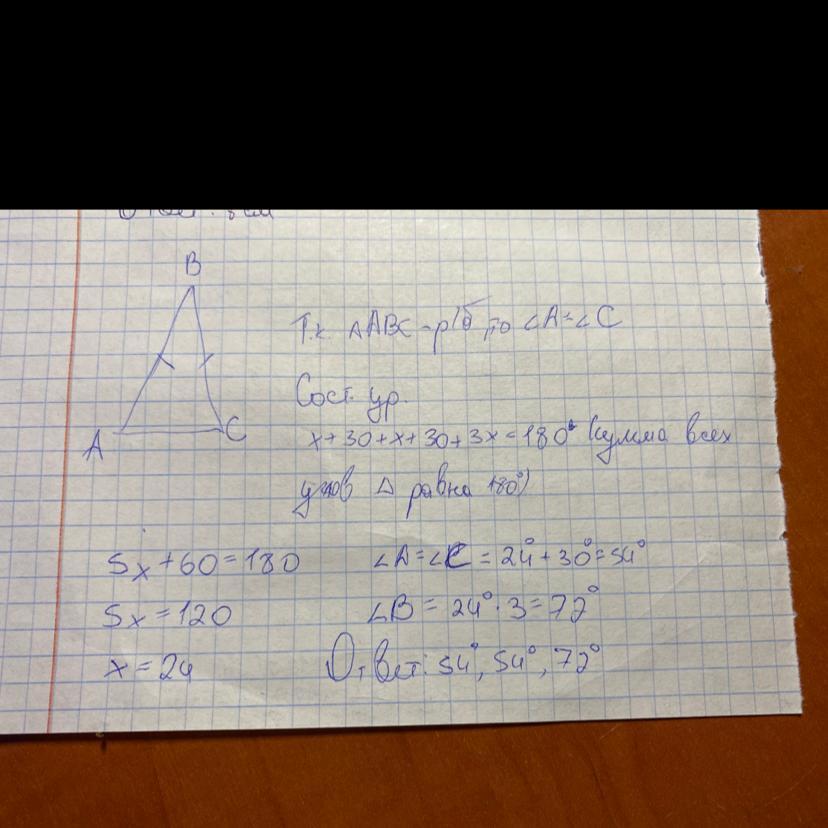 B
A
C
Т.к. △ABC - р/б, то ∠A=∠C
Сост. ур.
x+30+x+30+3x=180° (сумма всех
углов △ равна 180°)
5x+60=180
5x=120
x=24
∠A=∠C=24°+30°=54°
∠B=24°·3=72°
Ответ: 54°, 54°, 72°